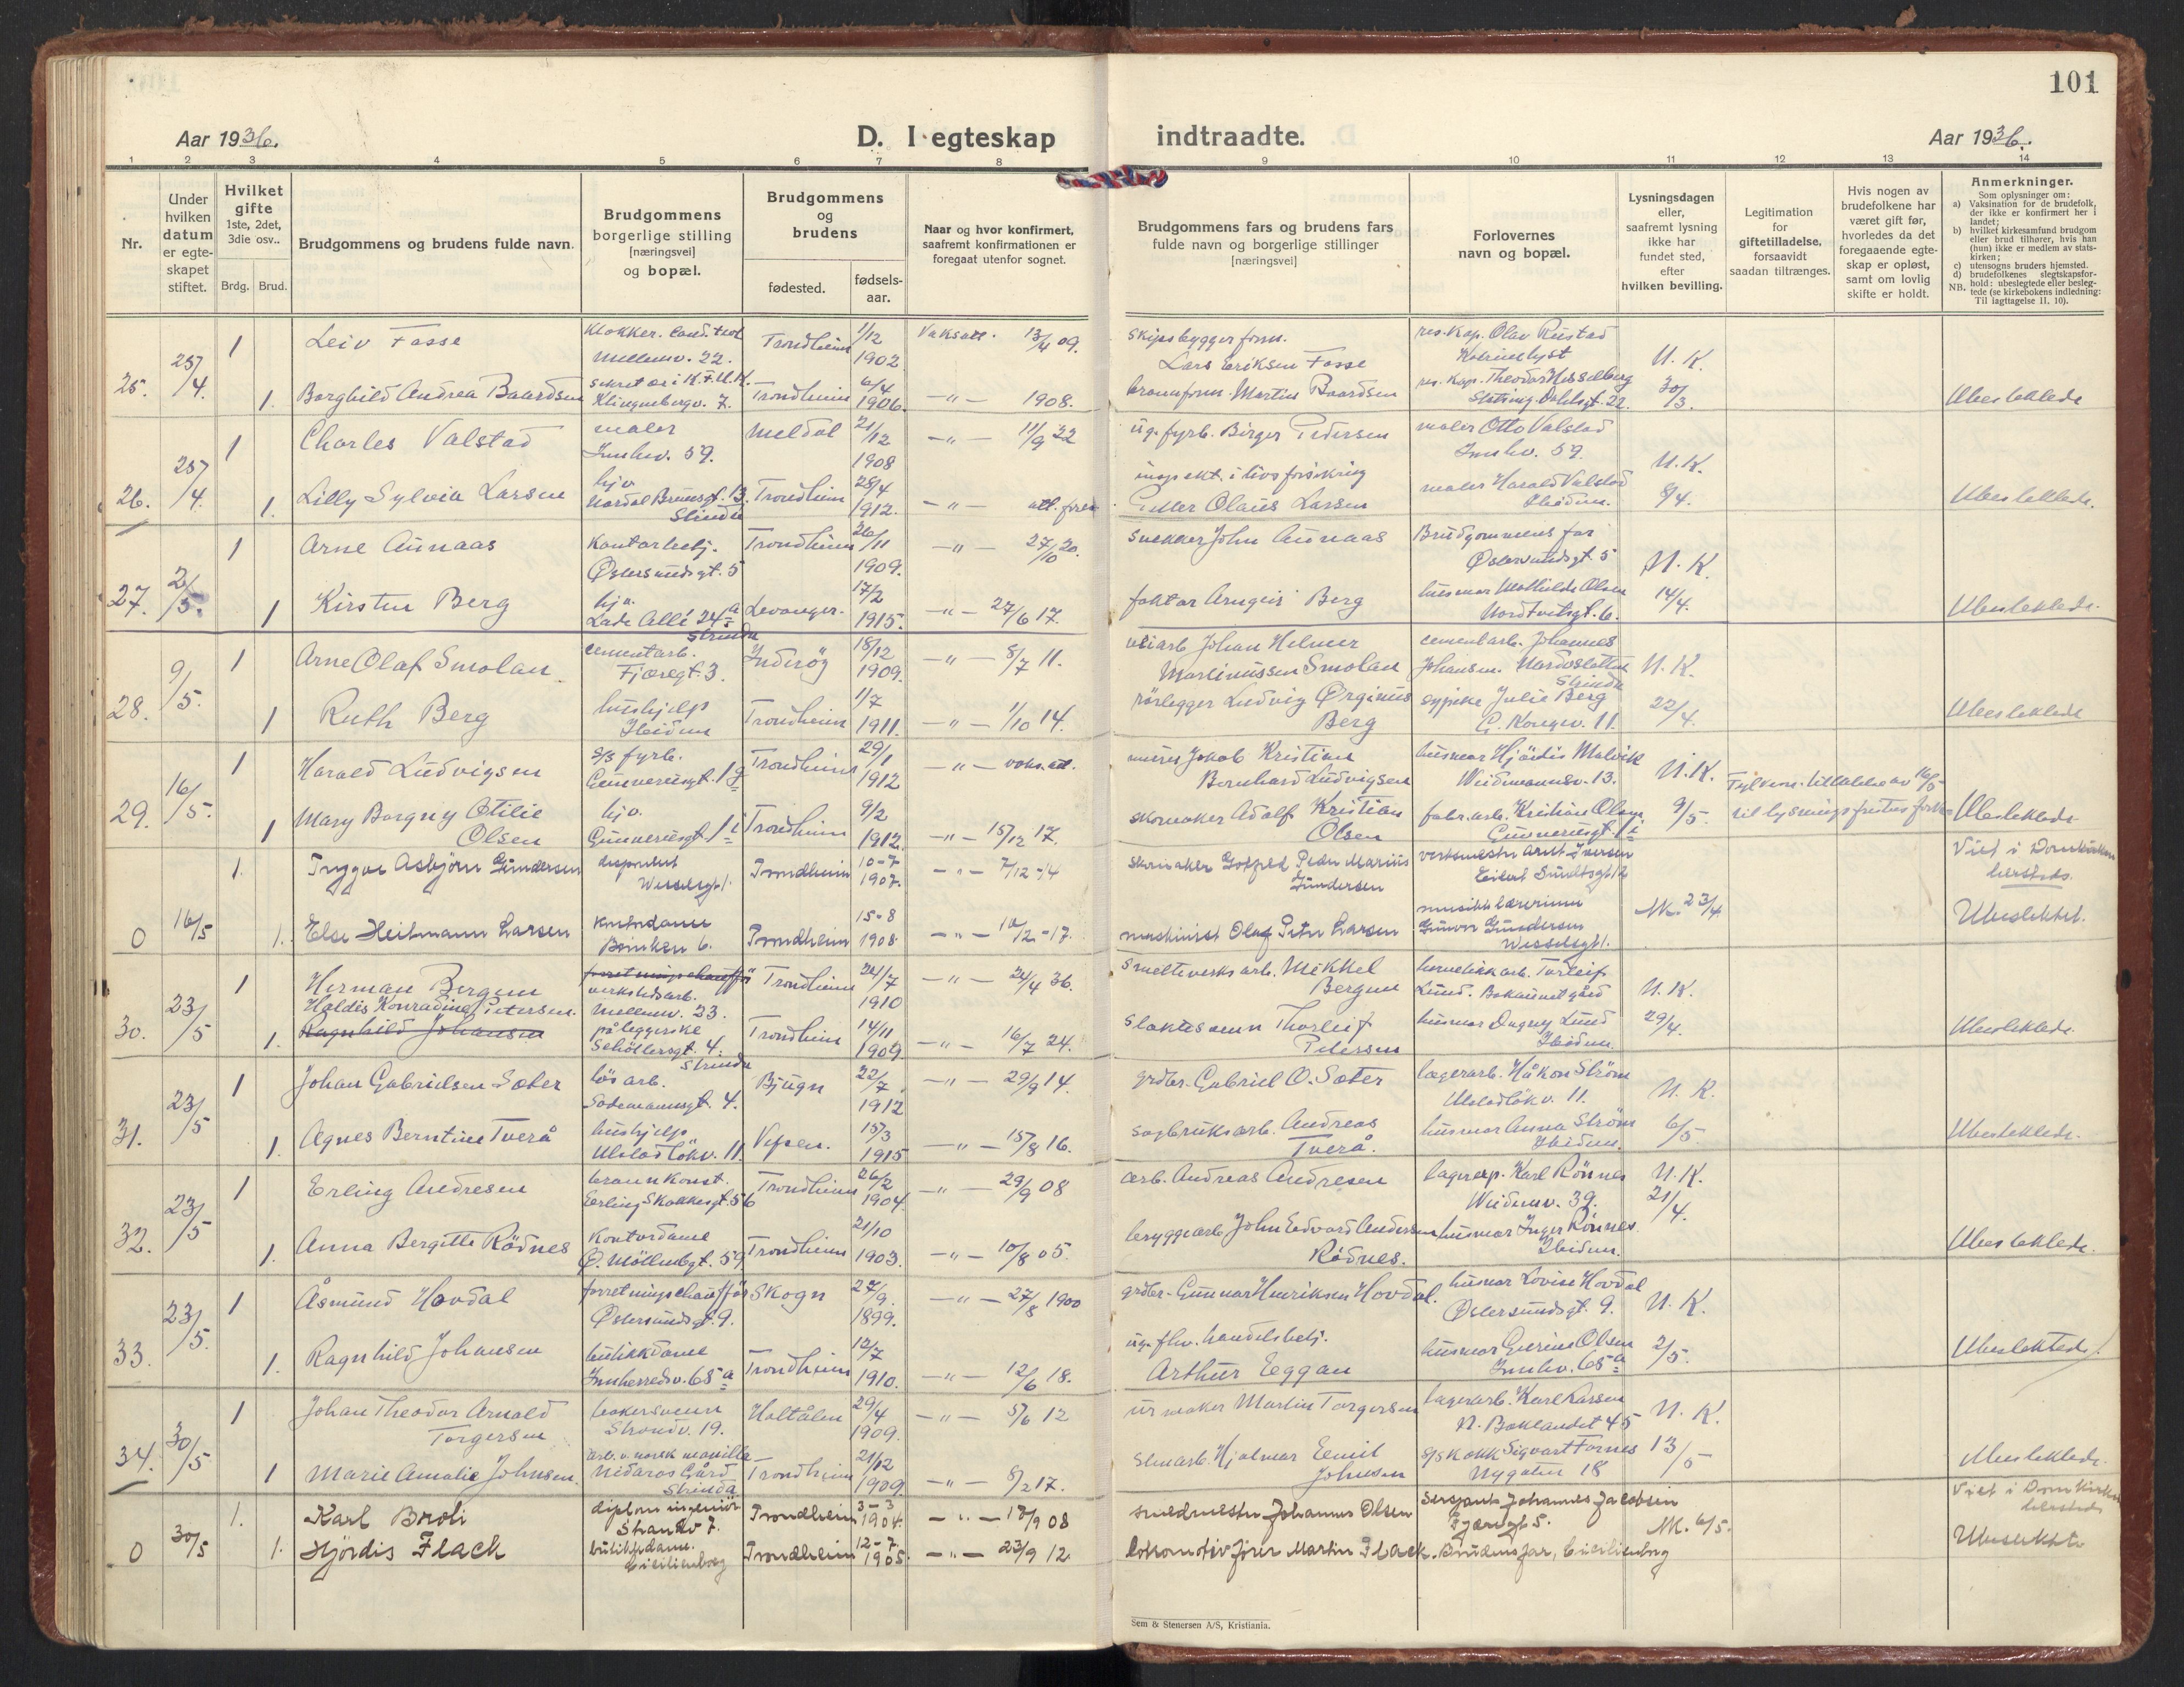 101
Aar 1936.
D. I egteskap indtraadte.
Aar 1936.
1 2 3 4 5 6 7 8 9 10 11 12 13 14
Nr.
Under hvilken datum er egteskapet stiftet.
Hvilket gifte 1ste, 2det, 3die osv..
Brdg. Brud.
Brudgommens og brudens fulde navn.
Brudgommens borgerlige stilling [næringsvei] og bopæl.
Brudgommens og brudens
fødested.
fødselsaar.
Naar og hvor konfirmert, saafremt konfirmationen er foregaat utenfor sognet.
Brudgommens fars og brudens fars fulde navn og borgerlige stillinger [næringsvei]
Forlovernes navn og bopæl.
Lysningsdagen eller, saafremt lysning ikke har fundet sted, efter hvilken bevilling.
Legitimation for giftetilladelse, forsaavidt saadan tiltrænges.
Hvis nogen av brudefolkene har været gift før, hvorledes da det foregaaende egteskap er opløst, samt om lovlig skifte er holdt.
Anmerkninger.
Som oplysninger om:
a) Vaksination for de brudefolk, der ikke er konfirmert her i landet;
b) hvilket kirkesamfund brudgom eller brud tilhører, hvis han (hun) ikke er medlem av statskirken;
c) utensogns bruders hjemsted.
d) brudefolkenes slegtskapsforhold: ubeslegtede eller beslegtede (se kirkebokens indledning: Til iagttagelse II. 10).
NB.
25. 25/4. 1 Leiv Fosse Klokker. cand. teol Mellemv. 22. Trondheim 1/12 1902 Vaks. att. 13/4 09. Skipsbygger form. Lars Eriksen Fosse res. kap. Olav Rustad U. K.
1. Borghild Andrea Baardsen sekretær i K.F.U.K. Klingenbergv. 7. Trondheim 6/4 1906. -"- 1908. Martin Baardsen res. kap. Theodor Hesselberg 30/3. Ubeslektede
26. 25/4. 1 Charles Valstad maler Innhv. 59. Meldal 21/12 1908 -"- 11/9 22 ug. fyrb. Birger Pedersen maler Otto Valstad Innhv. 59. U.K.
1. Lilly Sylvia Larsen hjv Strinda Trondheim 28/4 1912. -"- att. forev. inspekt. i livsforsikring Peder Olaus Larsen maler Harald Valstad Ibidem. 8/4. Ubeslektede.
27. 2/5. 1 Arne Aunaas Kontorbetj. Østersundsgt. 5 Trondheim 26/11 1909. -"- 27/10 20. Snekker John Aunaas Brudgommens far Østersundsgt. 5 U. K.
1 Kirsten Berg hjv. Lade Allé 24a Strinda Levanger. 17/2 1915. -"- 27/6 17. faktor Arngeir Berg husmor Mathilde Olsen 14/4. Ubeslektede.
28. 9/5. 1 Arne Olaf Smolan cementarb. Fjæregt. 3. Inderöy 18/12 1909. -"- 8/7 11. Johan Helmer Martinussen Smolan cementarb. Johannes Johansen. Strinda U. K.
1 Ruth Berg hushjelp Ibidem Trondheim 1/7 1911. -"- 1/10 14. rörlegger Ludvig Örginus Berg sypike Julie Berg E. Kongev. 11. 22/4. Ubeslektede
29. 16/5. 1 Harald Ludvigsen s/s fyrb. Gunnerusgt. 1g Trondheim 29/1 1912 -"- vaks. att. murer Jakob Kristian Bernhard Ludvigsen husmor Hjördis Malvik Weidemannsv. 13. U.K. Fylkem. tillatelse av 16/5
1 Mary Borgny Otilie Olsen hjv. Gunnerusgt. 1i Trondheim 9/2 1912. -"- 15/12 17. Skomaker Adolf Kristian Olsen fabr. arb. Kristian Olsen Gunnerusgt. 9/5. til lysningsfristens Ubeslektede
0 16/5 1. Trygve Asbjörn Gundersen disponent Wesselsgt 1. Trondheim 10-7 1907. -"- 7/12-14 Gotfred Peder Marius Gundersen verksmester Arnt Iversen Eilert Sundtsgt 12 Viet i Domkirken hersteds.
1. Else Heitmann Larsen kontordame Brinken 6. Trondheim 15-8 1908 -"- 10/12-17. maskinist Olaf Peter Larsen musikklærerinne Gunvor Gundersen Wesselsgt 1. M. 23/4 Ubeslektet.
30. 23/5 1 Herman Bergum forretningschauffør verkstedsarb. Mellemv. 23. Trondheim 24/7 1910 -"- 24/4 36. Smelteverksarb. Mikkel Bergum Torleif Lund. Bakaunet gård U. K.
1. Haldis Konradine Petersen. Ragnhild Johansen påleggerske Schöllersgt. 4. Strinda Trondheim 14/11 1909 -"- 16/7 24. Slaktesvenn Thorleif Petersen husmor Dagny Lund Ibidem. 29/4. Ubeslektede.
31. 23/5 1 Johan Gabrielsen Sæter lösarb. Sodemannsgt. 4. Bjugn 22/7 1912 -"- 29/9 14. grdbr. Gabriel O. Sæter lagerarb. Håkon Ström Ulstadlökv. 11. U. K.
1. Agnes Berntine Tverå hushjelp Ulstadlökv. 11. Vefsen. 15/3 1915 -"- 15/8 16. Sagbruksarb. Andreas Tverå. husmor Anna Ström Ibidem. 6/5. Ubeslektede.
32. 23/5 1 Erling Andresen brannkonst. Erling Skakkesgt. 56 Trondheim 26/2 1904. -"- 29/9 08 arb. Andreas Andresen lagereksp. Karl Rönnes Weidemv. 39. U. K. 21/4.
1. Anna Bergitte Rödnes Kontordame Ö. Möllenbgt. 59 Trondheim 21/10 1903. -"- 10/8 05. bryggearb John Edvard Andersen Rödnes. husmor Inger Rönnes Ibidem. Ubeslektede.
33. 23/5. 1 Åsmund Hovdal forretningschauffør Østersundsgt. 9. Skogn 27/9. 1899. -"- 27/8 1900 grdbr. Gunnar Henriksen Hovdal. husmor Lovise Hovdal Østersundsgt. 9. U. K.
1. Ragnhild Johansen butikkdame Innherredsv. 68a Trondheim 12/7 1910. -"- 12/6 18. ug. fhv. handelsbetj. Arthur Eggan husmor Olsen Innhv. 68a 2/5. Ubeslektede.
34. 30/5 1 Johan Theodor Arnold Torgersen bakersvenn Strandv. 19. Holtålen 29/4 1909. -"- 5/6 12 urmaker Martin Torgersen lagerarb. Karl Larsen N. Baklandet 45 U. K.
1 Marie Amalie Johnsen. arb. v. norsk manilla Nidaros Gård Strinda Trondheim 21/12 1909. -"- 8/2 17. Hjalmar Emil Johnsen s/s kokk Sigvart Fornes Nygaten 18 13/5 Ubeslektede.
0 30/5 1. Karl Broli diplom ingeniör Strandv 7. Trondheim 3-3 1904. -"- 13/9 08 smedmester Johannes Olsen Sersjant Johannes Jacobsen Fjæregt 5. M. 6/5. Viet i Domkirken hersteds
1. Hjördis Flack butikkdame. Cicilienborg Trondheim 12-7 1905 -"- 23/9 12. Lokomotivförer Martin Flack. Brudens far, Cicilienborg Ubeslektede
Sem & Stenersen A/S, Kristiania.